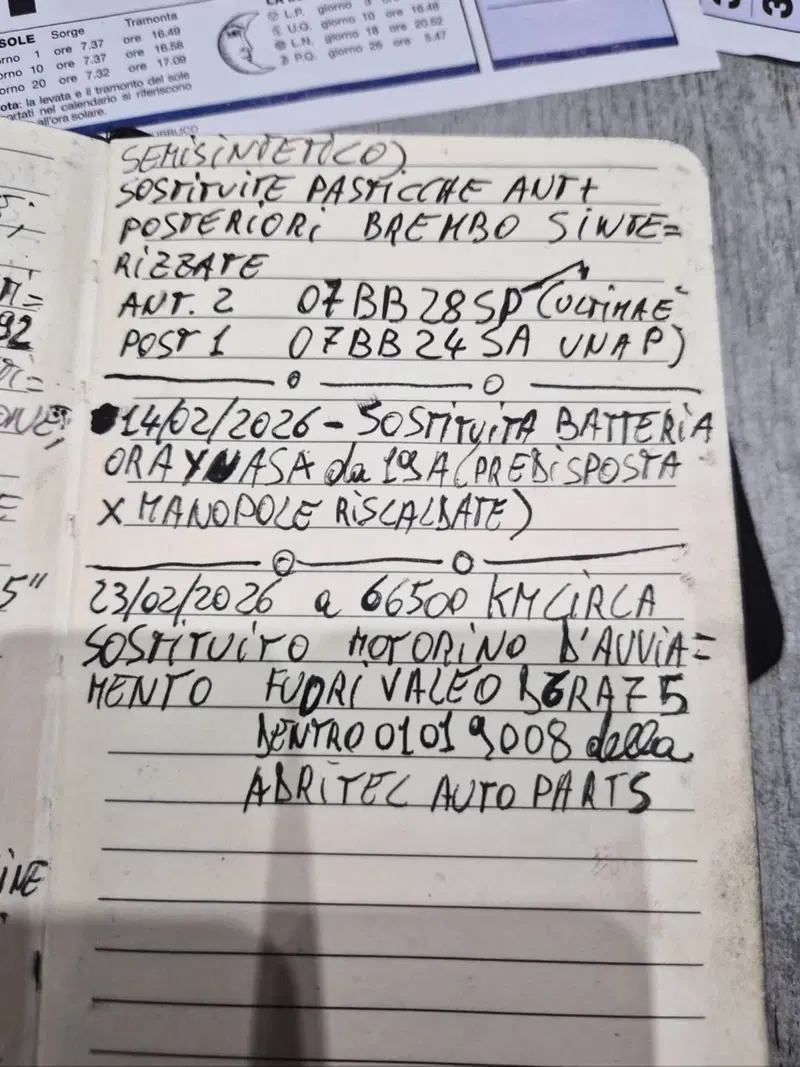 Tramonta
SOLE Sorge ore 16.49
orno 1 ore 7.37 ore 16.58
orno 10 ore 7.37 ore 17.09
orno 20 ore 7.32
ota: la levata e il tramonto del sole
ortati nel calendario si riferiscono
all'ora solare.
L.P. giorno
U.Q. giorno 10 ore 16.48
L.N. giorno 18 ore 20.52
P.Q. giorno 26 ore 5.47
SEMISINTETICO)
SOSTITUITE PASTICCHE ANT+
POSTERIORI BREMBO SINTE=
RIZZATE
ANT. 2 07BB28SP (ULTIMAE
POST 1 07BB24SA UNA P)
14/02/2026 - SOSTITUITA BATTERIA
ORA YUASA da 19A (PREDISPOSTA
X MANOPOLE RISCALDATE)
23/02/2026 a 66500 KM CIRCA
SOSTITUITO MOTORINO D'AVVIA=
MENTO FUORI VALEO D6RA75
DENTRO 01019008 della
ABRITEC AUTO PARTS
92
5"